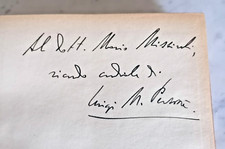 Al dott. Mario Missiroli,
ricordo cordiale di
Luigi M. Personè